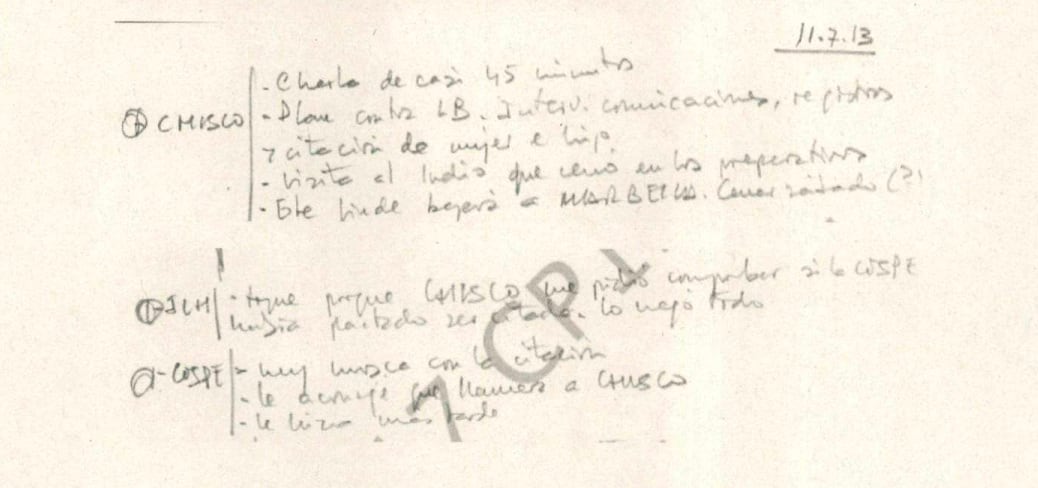 11.7.13
- Charla de casi 45 minutos
CHISCO - Plan contra LB. Interv. comunicaciones, registros
y citación de mujer e hijo.
- Visita al Indio que en los preparativos
- Este finde bajará a MARBELLA. Cenar sábado (?)
JLH - porque CHISCO me pidió comprobar si la COSPE
había pactado ser citada. Lo negó todo
- COSPE - muy mosca con la citación
- le aconsejé que llamara a CHISCO
- le más tarde
1 CPI